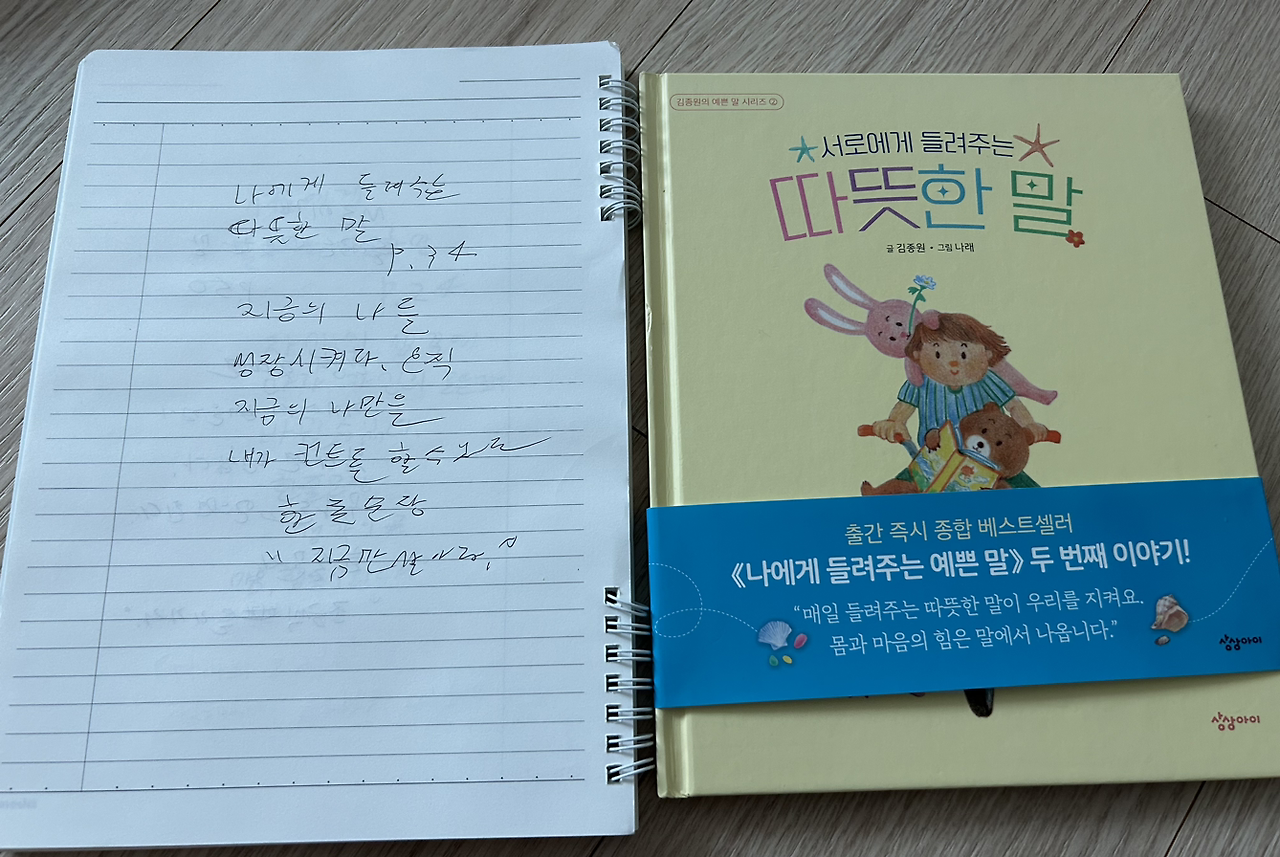 나에게 들려주는
따뜻한 말
P. 34
지금의 나를
성장시켜라. 오직
지금의 나만을
내가 컨트롤 할 수
한 문장
"지금만 살아라."
김종원의 예쁜 말 시리즈 ②
서로에게 들려주는
따뜻한 말
글 김종원 • 그림 나래
출간 즉시 종합 베스트셀러
《나에게 들려주는 예쁜 말》 두 번째 이야기!
“매일 들려주는 따뜻한 말이 우리를 지켜요.
몸과 마음의 힘은 말에서 나옵니다.”
상상아이
상상아이